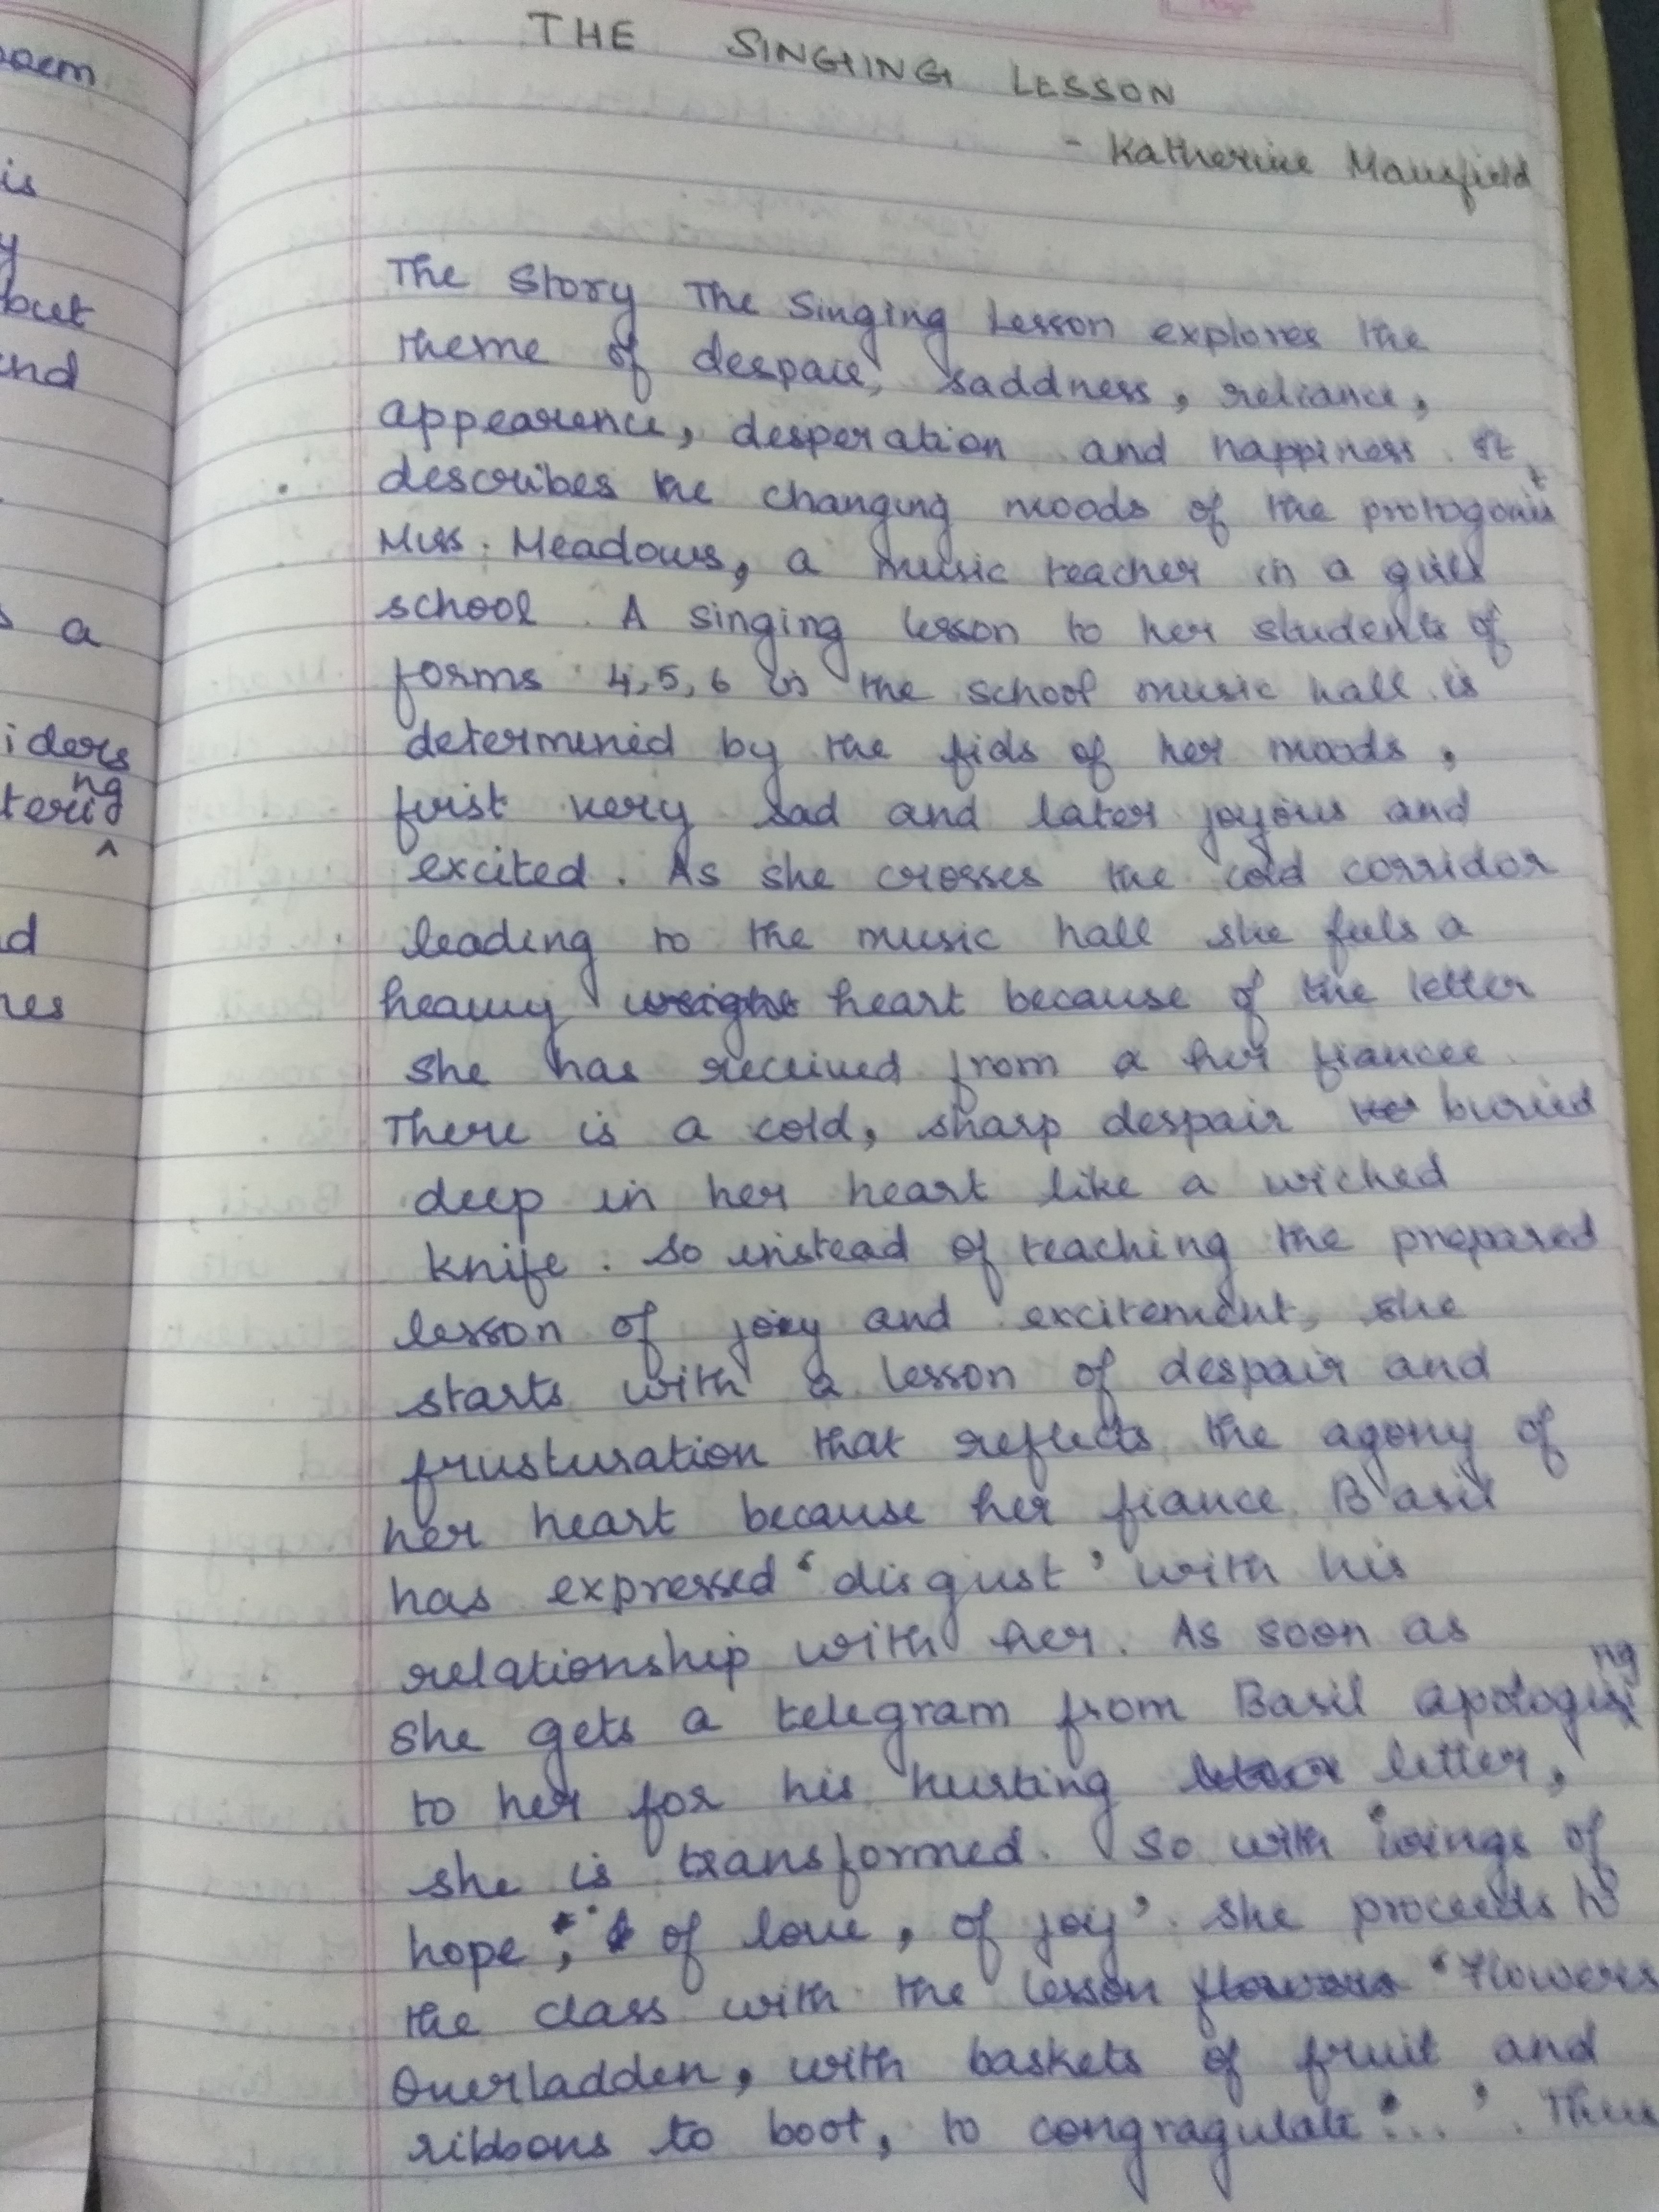 oem
is
y
but
nd
s a
iders
ng
terig
^
d
nes
THE SINGING LESSON
- Katherine Mansfield
The Story The Singing Lesson explores the
theme of despair, saddness, reliance,
appearence, desperation and happiness. It
describes the changing moods of the protogonist
Miss. Meadows, a music teacher in a girls
school. A singing lesson to her students of
forms 4,5,6 in the school music hall is
determined by the fids of her moods,
first very sad and later joyous and
excited. As she crosses the cold corridor
leading to the music hall she feels a
heavy weight heart because of the letter
she has received from a her fiancee.
There is a cold, sharp despair buried
deep in her heart like a wicked
knife. So instead of teaching the prepared
lesson of joy and excitement, she
starts with a lesson of despair and
frusturation that reflects the agony of
her heart because her fiance Basil
has expressed 'disgust' with his
relationship with her. As soon as
she gets a telegram from Basil apologising
to her for his hurting letter,
she is transformed. So with 'wings of
hope, of love, of joy'. she proceeds to
the class with the lesson flowers 'Flowers
Overladden, with baskets of fruit and
ribbons to boot, to congragulate'...'. Thus